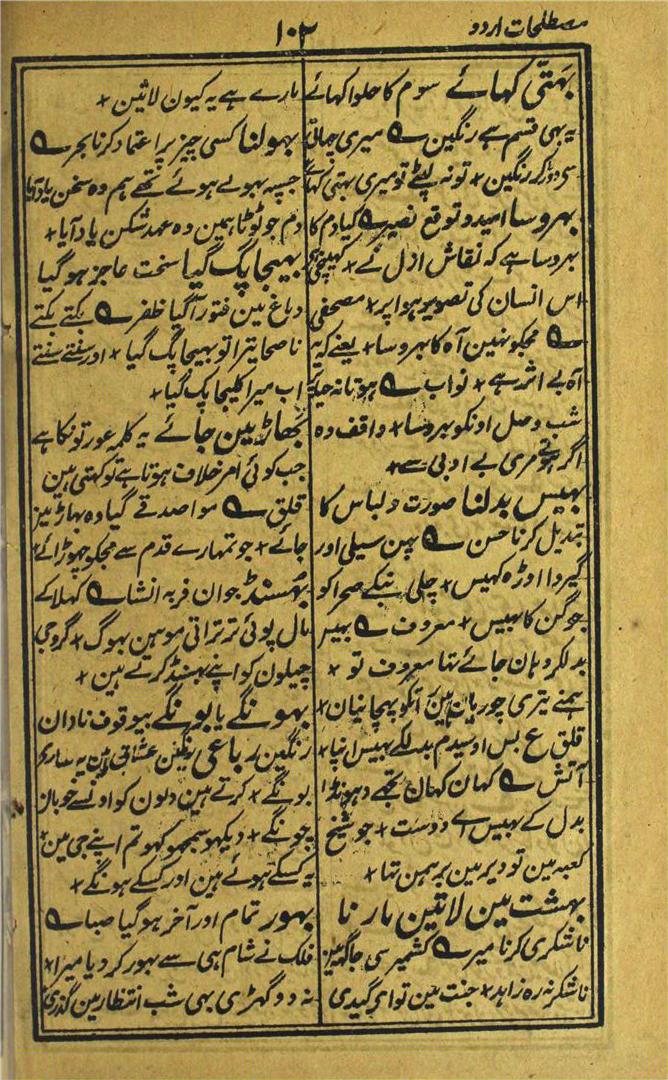 مصطلحات اردو
۱۰۲
بہتّی کہائے سوم کا حلوا کہائے
یہ بہی قسم ہے رنگین ؎ میری چہاتی
سی دوڑ کر رنگین * تو نہ لپٹے تو میری بہتی کہائے
بہروسا امید و توقع نصیر ؎ کیا دم کا
بہروسا ہے کہ نقاش ازل نے * کہینچی ہے
اس انسان کی تصویر ہوا پر * مصحفی
؎ مجکو نہین آہ کا بہروسا * یعنے کہ یہ
آہ بے اثر ہے * نواب ؎ ہوتا نہ حیا
شب وصل اونکو بہروسا * واقف دہ
اگر ہوتے مری بے ادبی سے *
بہیس بدلنا صورت و لباس کا
تبدیل کرنا حسن ؎ پہن سیلی اور
گیروا اوڑہ کہیس * چلی بنکے صحرا کو
جوگن کا بہیس * معروف ؎ بہیس
بدلکر وہان جائے تہا معروف تو *
ہمنے تیری چوریان ہین آنکو پہچانیان *
قلق ع بس اوسیدم بدلکے بہیس اپنا *
آتش ؎ کہان کہان تجہے ڈہونڈا
بدل کے بہیس اے دوست * جو شیخ
کعبہ مین تو دیر مین برہمن تہا *
بہشت مین لاتین مارنا
ناشکری کرنا میر ؎ کشمیر سی جاگہہ مین
ناشکر نہ رہ زاہد * جنت مین تو اے گیدی
مارے ہے یہ کیون لاتین *
بہولنا کسی چیز پر اعتماد کرنا بحر ؎
جسپہ بہولے ہوئے تہے ہم وہ سخن یاد آیا
دم جو ٹوٹا ہمین وہ عہد شکن یاد آیا *
بہیجا پک گیا سخت عاجز ہو گیا
دماغ مین فتور آ گیا ظفر ؎ بکتے بکتے
ناصحا تیرا تو بہیجا پک گیا * اور سنتے سنتے
اب میرا کلیجا پک گیا *
بھاڑ مین جائے یہ کلمہ عورتونکا ہے
جب کوئی امر خلاف ہوتا ہے تو کہتی ہین
قلق ؎ موا صدقے گیا وہ بہاڑ مین
جائے * جو تمہارے قدم سے مجکو چہوڑائے *
بہنڈ جوان فربہ انشا ؎ کہلا کے
مال پوئی ترتراتی موہن بہوگ * گرو جی
چیلون کو اپنے بہنڈ کرتے ہین *
بہونگے یا بونگے بیوقوف نادان
رنگین رباعی رنگین عشاق ہین یہ سارے
بونگے * کرتے ہین دلون کو اونسے خوبان
چونگے * دیکہو سمجہو کہو تم اپنے جی مین *
یہ کسکے ہوئے ہین اور کسکے ہونگے *
بہور تمام اور آخر ہو گیا صبا ؎
فلک نے شام ہی سے بہور کر دیا میرا *
نہ دو گہڑی بہی شب انتظار مین گذری